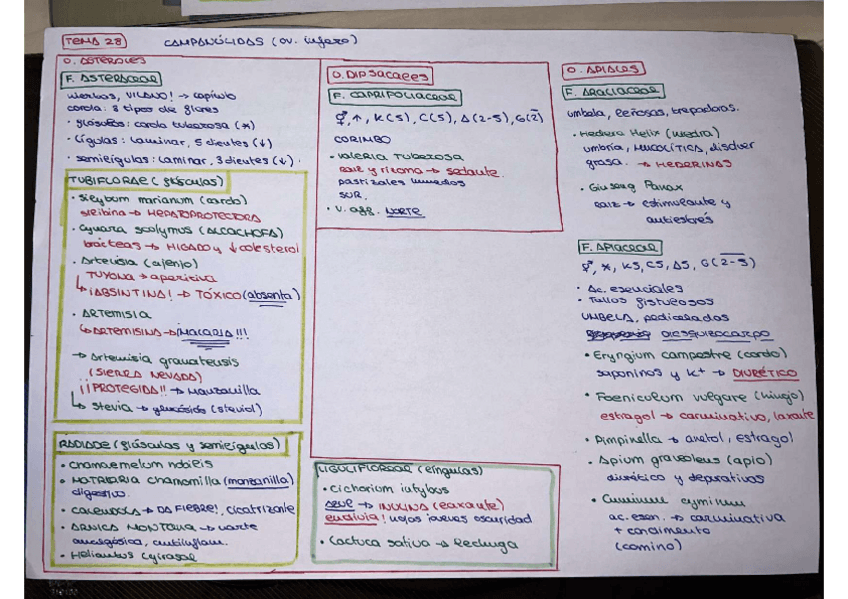 TEMA 28
CAMPANÚLIDAS (ov. ínfero)
O. ASTERALES
F. ASTERACEAE
Hierbas, VILANO! → capítulo
corola: 3 tipos de flores
· flósculos: corola tuberosa (*)
· Lígulas: Laminar, 5 dientes (↓)
· semilígulas: Laminar, 3 dientes (↓).
TUBIFLORAE (flósculos)
· Silybum marianum (cardo)
silibina → HEPATOPROTECTORA
· Cynara scolymus (ALCACHOFA)
brácteas → HIGADO y ↓colesterol
· Artemisia (ajenjo)
TUYONA → aperitiva
↳ ¡ABSINTINA! → TÓXICO (absenta)
· ARTEMISIA
↳ ARTEMISINA → ¡MALARIA!!!
→ Artemisia granatensis
(SIERRA NEVADA)
¡¡PROTEGIDA!! → Manzanilla
↳ Stevia → glucósidos (steviol)
RADIADE (flósculos y semilígulas)
· Chamaemelum nobilis
· MATRICARIA chamomilla (manzanilla)
digestivo.
· CALENDULA → DA FIEBRE!, cicatrizante
· ARNICA MONTANA →
analgésica, antiinflam.
· Heliantus Gyrasol
O. DIPSACALES
F. CAPRIFOLIACEAE
⚥, ↑, K(5), C(5), A(2-5), G(2̅)
CORIMBO
· Valeria Tuberosa
Raíz y rizoma → sedante.
pastizales húmedos
SUR.
· V. aff. NORTE
LIGULIFLORAE (lígulas)
· Cichorium intybus
→ INULINA (laxante)
endivia! hojas jóvenes oscuridad
· Lactuca sativa → Lechuga
O. APIALES
F. ARALIACEAE
umbela, leñosas, trepadoras.
· Hedera Helix (hiedra)
umbría, MUCOLÍTICA, disolver
grasa. → HEDERINAS
· Ginseng Panax
Raíz → estimulante y
antiestrés
F. APIACEAE
⚥, *, K5, C5, A5, G(2̅-̅5̅)
· Ac. esenciales
· Tallos fistulosos
UMBELA, pediceladas
DIESQUIZOCARPO
· Eryngium campestre (cardo)
saponinas y K+ → DIURÉTICO
· Foeniculum vulgare (hinojo)
estragol → carminativo, laxante
· Pimpinella → anetol, estragol
· Apium graveolens (apio)
diurético y depurativos
· Cuminum cyminum
ac. esen. → carminativa
+ condimento
(comino)